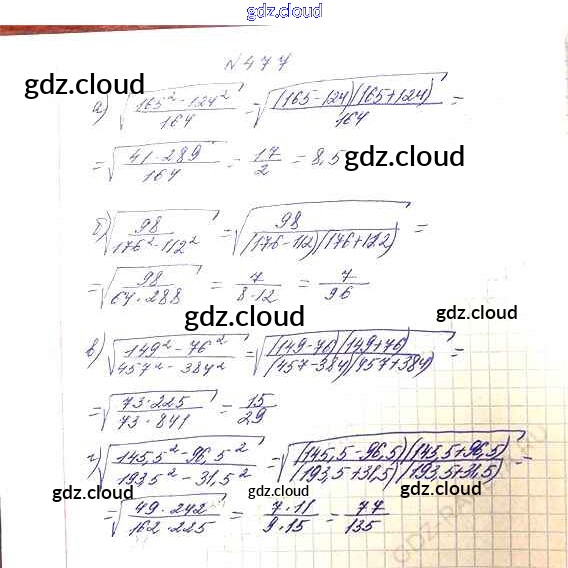 gdz.cloud
№ 477
gdz.cloud
а) √((165² - 124²)/164) = √((165-124)(165+124)/164) =
gdz.cloud
= √((41·289)/164) = 17/2 = 8,5
gdz.cloud
б) √(98/(176² - 112²)) = √(98/((176-112)(176+112))) =
= √(98/(64·288)) = 7/(8·12) = 7/96
gdz.cloud
gdz.cloud
в) √((149² - 76²)/(457² - 384²)) = √((149-76)(149+76)/((457-384)(457+384))) =
gdz.cloud
= √((73·225)/(73·841)) = 15/29
г) √((145,5² - 96,5²)/(193,5² - 31,5²)) = √((145,5-96,5)(145,5+96,5)/((193,5+31,5)(193,5+31,5))) =
gdz.cloud
gdz.cloud
= √((49·242)/(162·225)) = (7·11)/(9·15) = 77/135